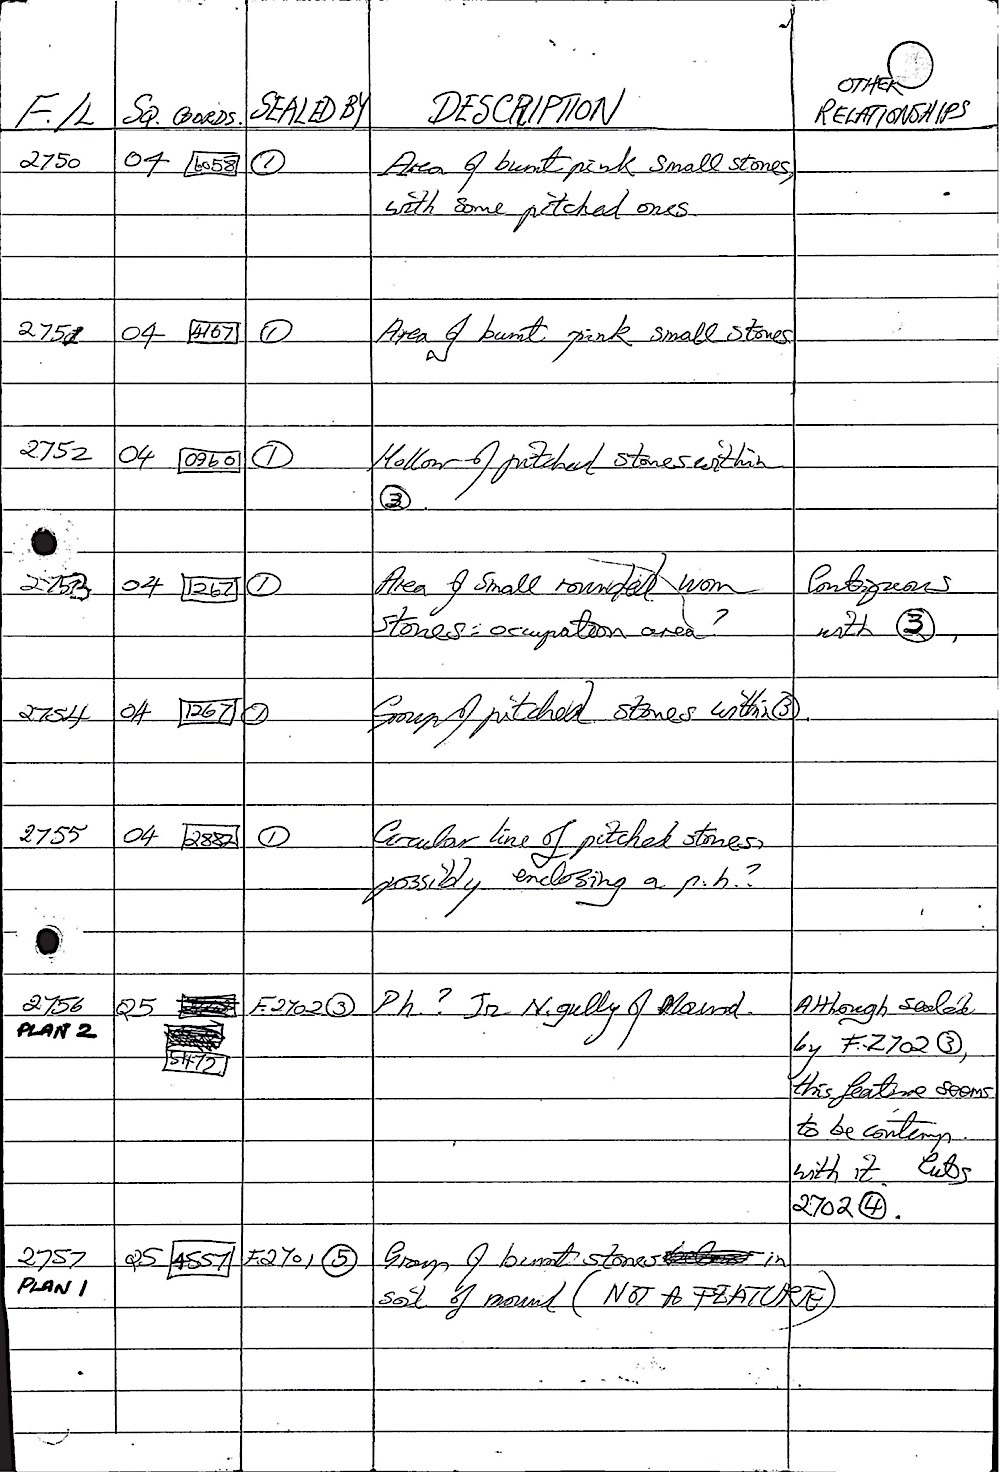 F./L SQ. COORDS. SEALED BY DESCRIPTION OTHER RELATIONSHIPS
2750 04 6058 ① Area of burnt pink small stones,
with some pitched ones.
2751 04 4167 ① Area of burnt pink small stones
2752 04 0960 ① Hollow of pitched stones within
③.
2753 04 1267 ① Area of small rounded worn Contiguous
stones = occupation area? with ③,
2754 04 1267 ① Group of pitched stones within ③.
2755 04 2882 ① Circular line of pitched stones,
possibly enclosing a p.h.?
2756 Q5 F.2702 ③ Ph.? In N. gully of Mound. Although sealed
PLAN 2 by F.2702 ③,
5472
this feature seems
to be contemp.
with it. Cuts
2702 ④.
2757 Q5 4557 F.2701 ⑤ Group of burnt stones in
PLAN 1 soil of mound (NOT A FEATURE)